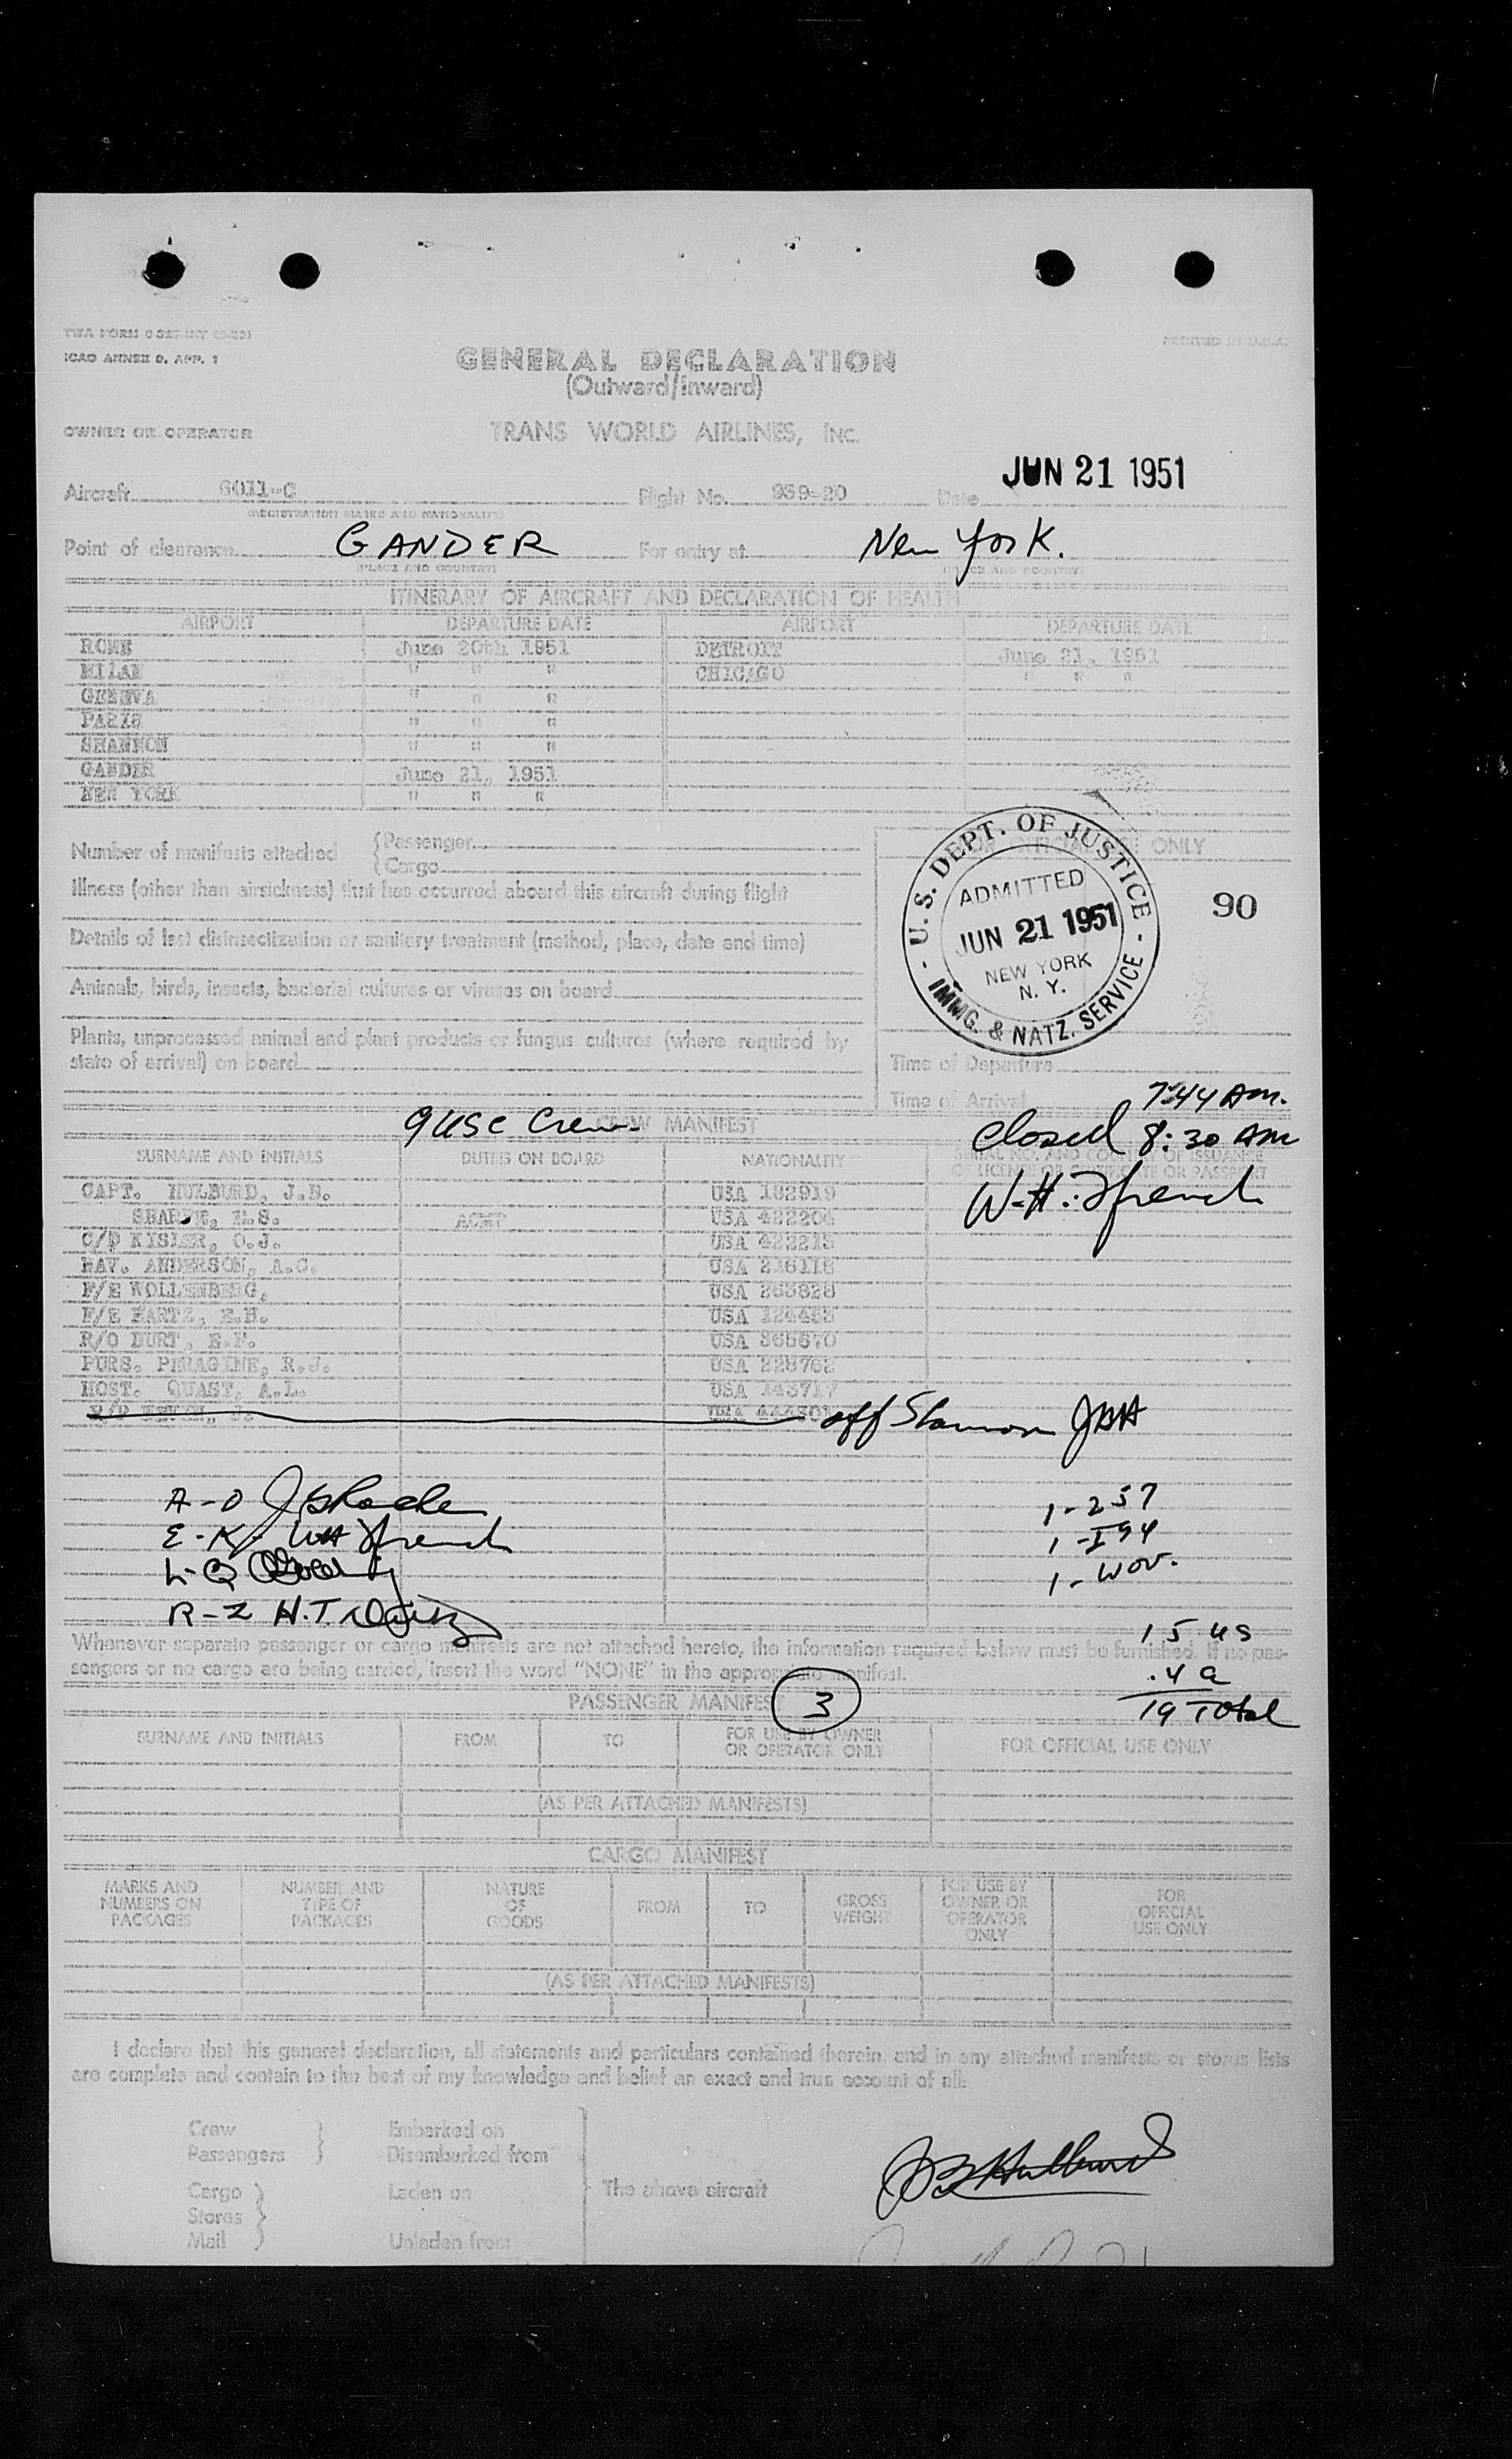 ICAO ANNEX 9, APP. 1
PRINTED IN U.S.A.
GENERAL DECLARATION
(Outward/Inward)
OWNER OR OPERATOR
TRANS WORLD AIRLINES, INC.
JUN 21 1951
Aircraft 6011-C Flight No. 939-20 Date
(REGISTRATION MARKS AND NATIONALITY)
Point of clearance GANDER For entry at New York.
(PLACE AND COUNTRY) (PLACE AND COUNTRY)
ITINERARY OF AIRCRAFT AND DECLARATION OF HEALTH
AIRPORT DEPARTURE DATE AIRPORT DEPARTURE DATE
ROME June 20th 1951 DETROIT June 21, 1951
MILAN " " " CHICAGO " " "
GENEVA " " "
PARIS " " "
SHANNON " " "
GANDER June 21, 1951
NEW YORK " " "
Number of manifests attached { Passenger
{ Cargo
FOR OFFICIAL USE ONLY
Illness (other than airsickness) that has occurred aboard this aircraft during flight
Details of last disinsectization or sanitary treatment (method, place, date and time)
Animals, birds, insects, bacterial cultures or viruses on board
Plants, unprocessed animal and plant products or fungus cultures (where required by
state of arrival) on board
U.S. DEPT. OF JUSTICE
ADMITTED
JUN 21 1951
NEW YORK
N. Y.
IMMG. & NATZ. SERVICE
90
Time of Departure
Time of Arrival 7:44 Am.
9 USC Crew CREW MANIFEST
Closed 8:30 AM
SURNAME AND INITIALS DUTIES ON BOARD NATIONALITY SERIAL NO. AND COUNTRY OF ISSUANCE
OF LICENSE OR CERTIFICATE OR PASSPORT
W-H. French
CAPT. HULBURD, J.B. USA 182919
SHARPE, L.S. ACMT USA 422206
C/P KYSLER, O.J. USA 422215
NAV. ANDERSON, A.C. USA 216118
F/E WOLLENBERG, USA 263828
F/E BARTZ, E.H. USA 124483
R/O BURT, E.F. USA 365670
PURS. PERAGINE, R.J. USA 228762
HOST. QUAST, A.L. USA 143717
off Shannon JBH
A-D
E-K WH French
L-Q
R-Z H.T.
1-257
1-I94
1-wov.
15 US
4 a
19 Total
Whenever separate passenger or cargo manifests are not attached hereto, the information required below must be furnished. If no pas-
sengers or no cargo are being carried, insert the word "NONE" in the appropriate manifest.
PASSENGER MANIFEST 3
SURNAME AND INITIALS FROM TO FOR USE BY OWNER
OR OPERATOR ONLY FOR OFFICIAL USE ONLY
(AS PER ATTACHED MANIFESTS)
CARGO MANIFEST
MARKS AND
NUMBERS ON
PACKAGES
NUMBER AND
TYPE OF
PACKAGES
NATURE
OF
GOODS
FROM
TO
GROSS
WEIGHT
FOR USE BY
OWNER OR
OPERATOR
ONLY
FOR
OFFICIAL
USE ONLY
(AS PER ATTACHED MANIFESTS)
I declare that this general declaration, all statements and particulars contained therein, and in any attached manifests or stores lists
are complete and contain to the best of my knowledge and belief an exact and true account of all:
Crew } Embarked on
Passengers } Disembarked from
Cargo } Laden on
Stores }
Mail } Unladen from
The above aircraft
JB Hulburd